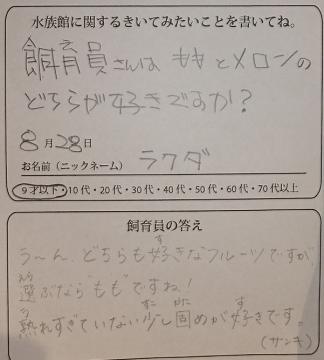 水族館に関するきいてみたいことを書いてね。
飼育員さんは ももとメロンの
どちらが好きですか?
8月28日
お名前(ニックネーム) ラクダ
9才以下・10代・20代・30代・40代・50代・60代・70代以上
飼育員の答え
う〜ん、どちらも好きなフルーツですが、
選ぶなら"もも"ですね!
熟れすぎていない少し固めが好きです。
(サンキ)